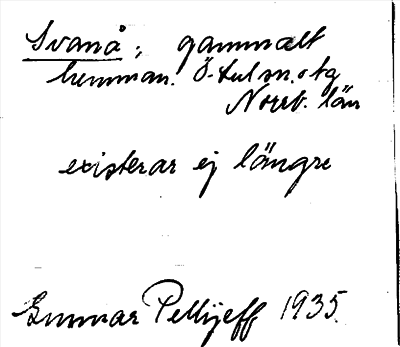 Svanå; gammalt
hemman. Ö-tul sn. o tg
Norrb. län
existerar ej längre
Gunnar Pellijeff 1935.